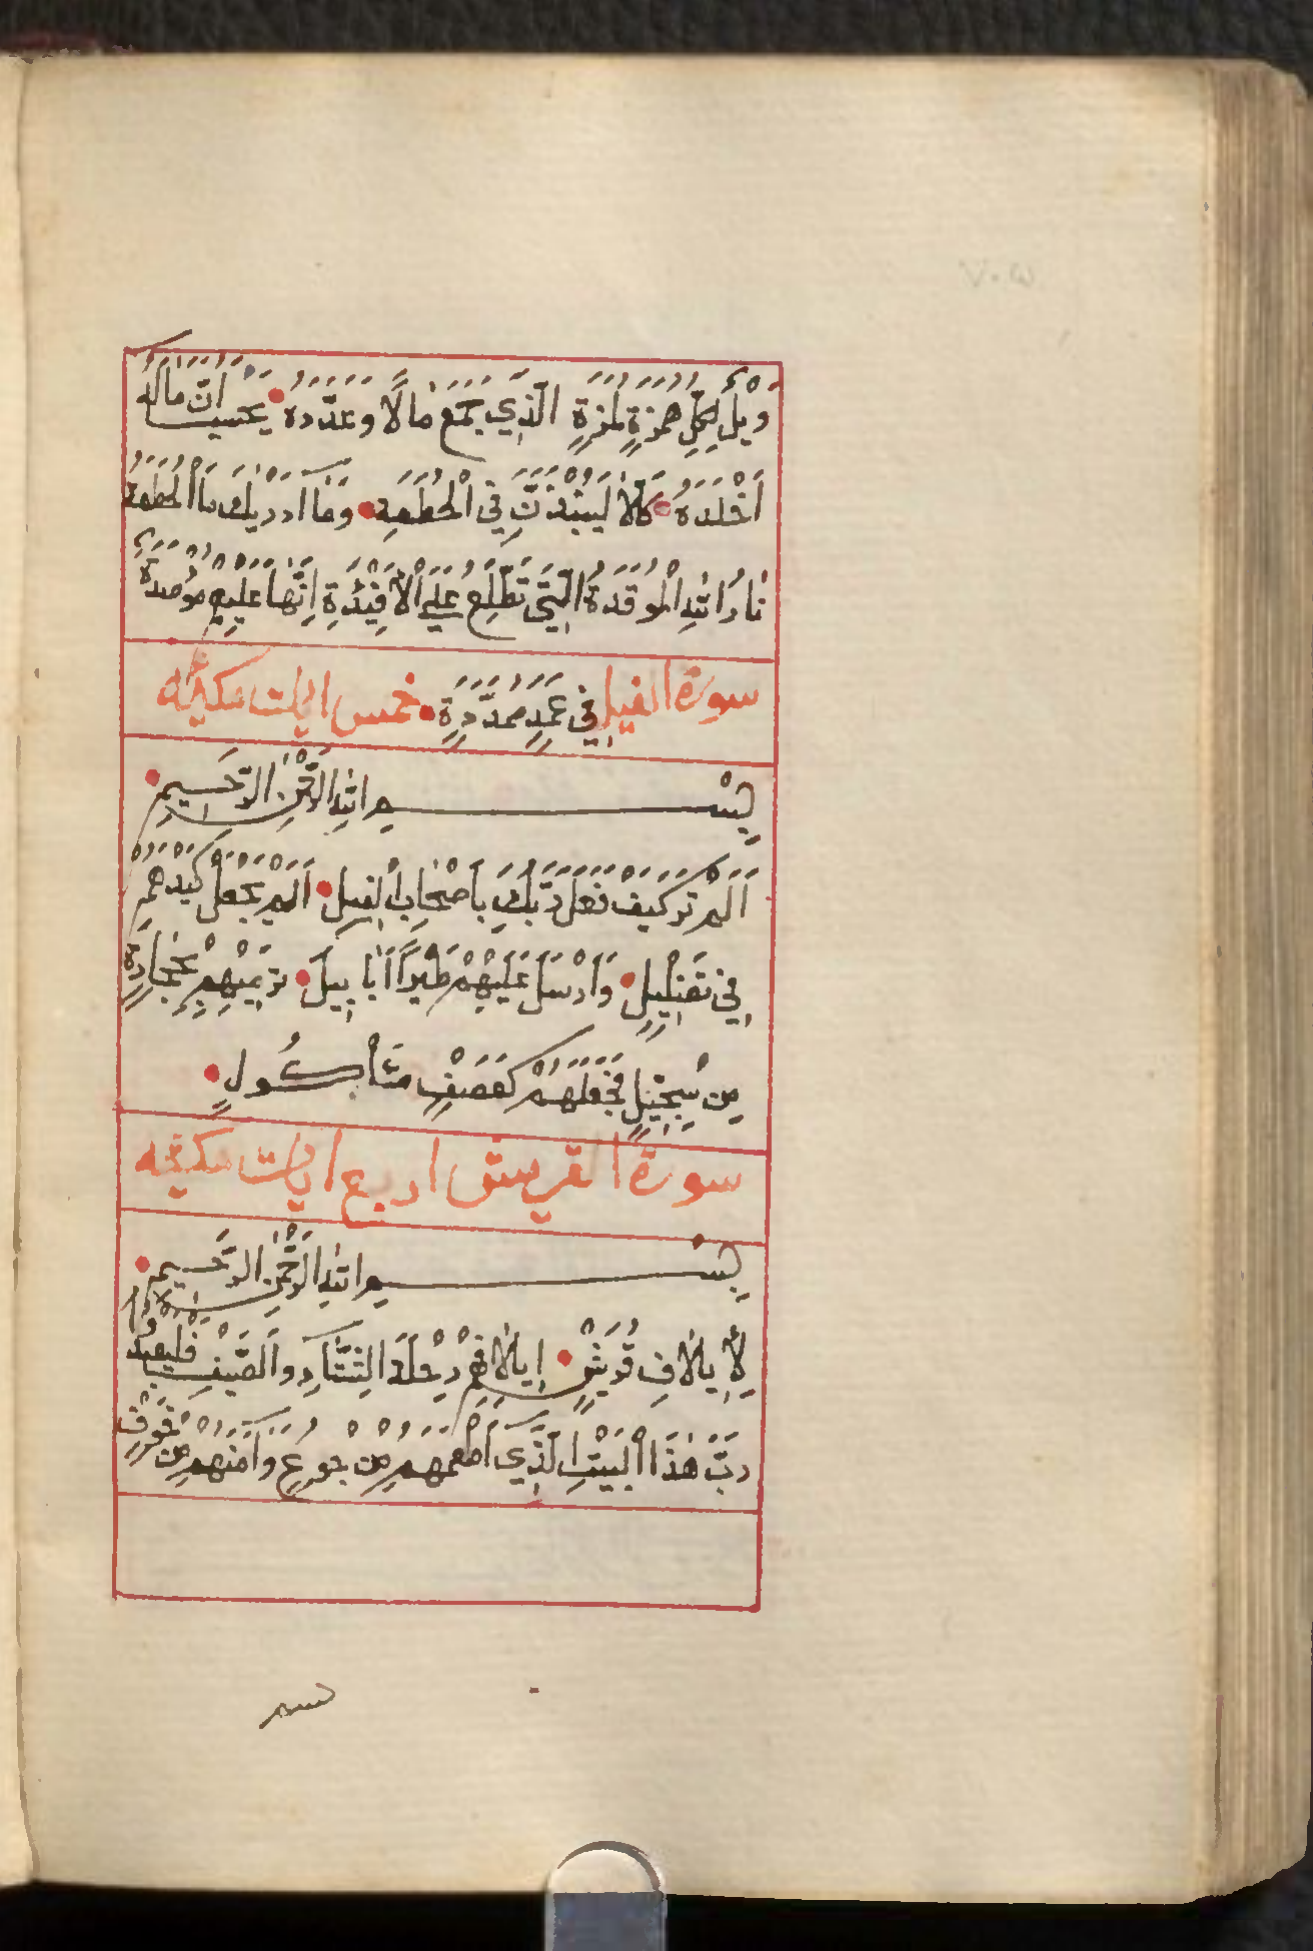 وَيْلٌ لِكُلِّ هُمَزَةٍ لُمَزَةٍ الَّذِي جَمَعَ مَالًا وَعَدَّدَهُ يَحْسَبُ اَنَّ مَالَهُ
اَخْلَدَهُ كَلَّا لَيُنْبَذَنَّ فِي الْحُطَمَةِ وَمَا اَدْرٰيكَ مَا الْحُطَمَةُ
نَارُ اللّٰهِ الْمُوقَدَةُ الَّتِي تَطَّلِعُ عَلَي الْاَفْئِدَةِ اِنَّهَا عَلَيْهِمْ مُؤْصَدَةٌ
سورة الفيل فِي عَمَدٍ مُمَدَّدَةٍ خمس ايات مكيّه
بِسْمِ اللّٰهِ الرَّحْمٰنِ الرَّحِيمِ
اَلَمْ تَرَ كَيْفَ فَعَلَ رَبُّكَ بِاَصْحَابِ الْفِيلِ اَلَمْ يَجْعَلْ كَيْدَهُمْ
فِي تَضْلِيلٍ وَاَرْسَلَ عَلَيْهِمْ طَيْرًا اَبَابِيلَ تَرْمِيْهِمْ بِحِجَارَةٍ
مِن سِجِّيلٍ فَجَعَلَهُمْ كَعَصْفٍ مَأْكُولٍ
سورة القريش اربع ايات مكيّه
بِسْمِ اللّٰهِ الرَّحْمٰنِ الرَّحِيمِ
لِاِيلَافِ قُرَيْشٍ اِيلَافِهِمْ رِحْلَةَ الشِّتَاءِ وَالصَّيْفِ فَلْيَعْبُدُوا
رَبَّ هٰذَا الْبَيْتِ الَّذِي اَطْعَمَهُمْ مِنْ جُوعٍ وَاٰمَنَهُمْ مِنْ خَوْفٍ